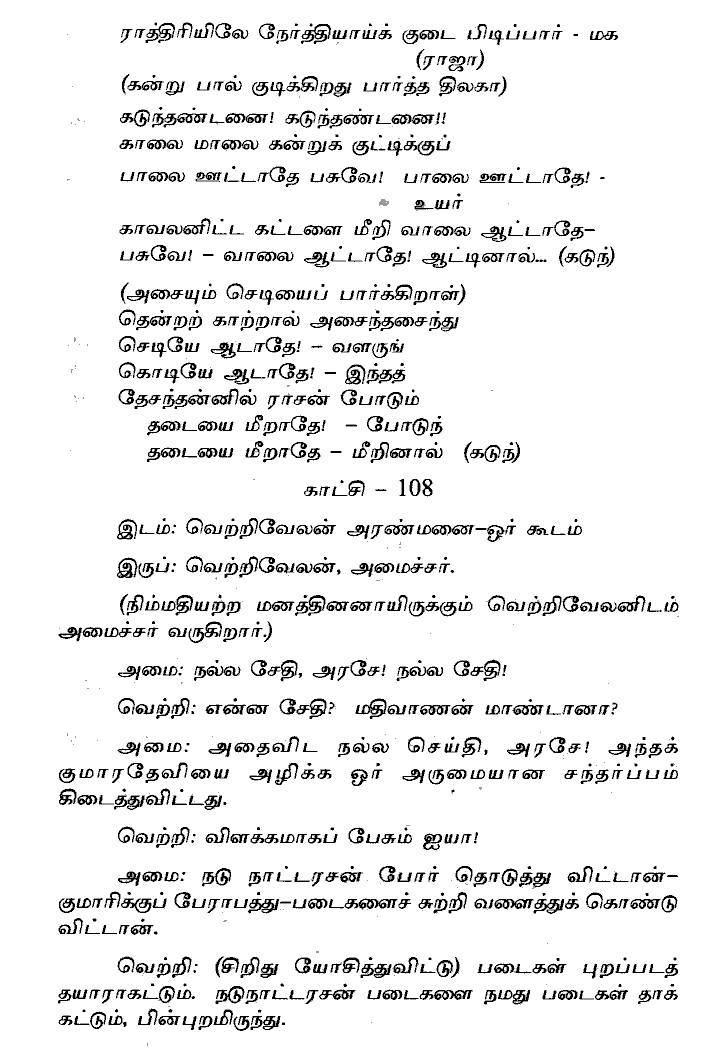 ராத்திரியிலே நேர்த்தியாய்க் குடை பிடிப்பார் - மக
(ராஜா)
(கன்று பால் குடிக்கிறது பார்த்த திலகா)
கடுந்தண்டனை! கடுந்தண்டனை!!
காலை மாலை கன்றுக் குட்டிக்குப்
பாலை ஊட்டாதே பசுவே! பாலை ஊட்டாதே! -
உயர்
காவலனிட்ட கட்டளை மீறி வாலை ஆட்டாதே–
பசுவே! – வாலை ஆட்டாதே! ஆட்டினால்... (கடுந்)
(அசையும் செடியைப் பார்க்கிறாள்)
தென்றற் காற்றால் அசைந்தசைந்து
செடியே ஆடாதே! – வளருங்
கொடியே ஆடாதே! – இந்தத்
தேசந்தன்னில் ராசன் போடும்
தடையை மீறாதே! – போடுந்
தடையை மீறாதே – மீறினால் (கடுந்)
காட்சி – 108
இடம்: வெற்றிவேலன் அரண்மனை–ஓர் கூடம்
இருப்: வெற்றிவேலன், அமைச்சர்.
(நிம்மதியற்ற மனத்தினனாயிருக்கும் வெற்றிவேலனிடம்
அமைச்சர் வருகிறார்.)
அமை: நல்ல சேதி, அரசே! நல்ல சேதி!
வெற்றி: என்ன சேதி? மதிவாணன் மாண்டானா?
அமை: அதைவிட நல்ல செய்தி, அரசே! அந்தக்
குமாரதேவியை அழிக்க ஓர் அருமையான சந்தர்ப்பம்
கிடைத்துவிட்டது.
வெற்றி: விளக்கமாகப் பேசும் ஐயா!
அமை: நடு நாட்டரசன் போர் தொடுத்து விட்டான்–
குமாரிக்குப் பேராபத்து–படைகளைச் சுற்றி வளைத்துக் கொண்டு
விட்டான்.
வெற்றி: (சிறிது யோசித்துவிட்டு) படைகள் புறப்படத்
தயாராகட்டும். நடுநாட்டரசன் படைகளை நமது படைகள் தாக்
கட்டும், பின்புறமிருந்து.